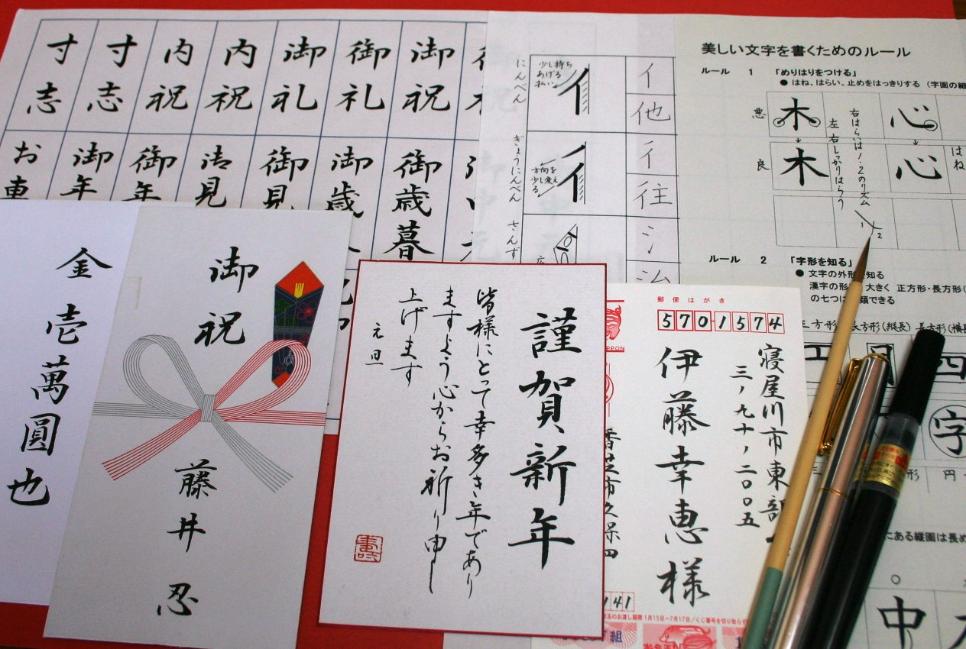 寸志
寸志
内祝
内祝
御礼
御礼
御祝
御年
御年
御見
御見
御歳
御歳暮
にんべん
少し持ち
あげる
払い
イ
イ
他
ぎょうにんべん
方向を
少し変え
る
彳
彳
往
さんず
シ
美しい文字を書くためのルール
ルール 1 「めりはりをつける」
● はね、はらい、止めをはっきりする
悪
木
心
良
木
心
右はらいは1・2のリズム
左右しっかりはらう
1
2
ルール 2 「字形を知る」
● 文字の外形を知る
漢字の形 大きく 正方形・長方形
の七つ 類できる
長方形(縦長)
字
円
ある縦画は長め
中
金壱萬圓也
御祝
藤井忍
謹賀新年
皆様にとって幸多き年であり
ますよう心からお祈り申し
上げます
元旦
郵便はがき
5701574
寝屋川市東部
三、九十、二〇〇五
伊藤幸恵様
香芝市久保田
141